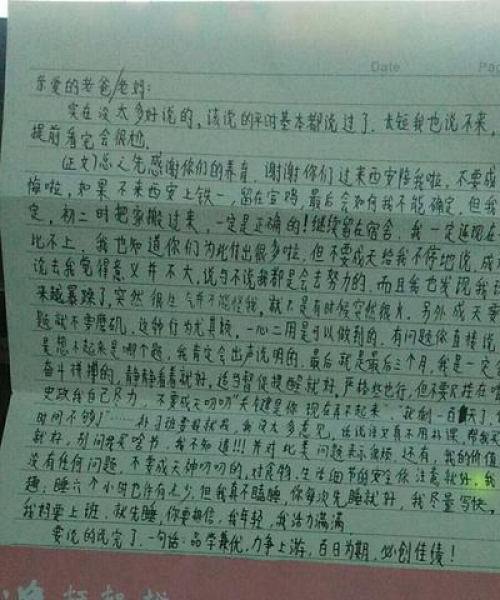 Date
Pag
亲爱的老爸/老妈:
实在没太多好说的,该说的平时基本都说过了,太短我也说不来,
提前看完会很尬.
(正文)总之先感谢你们的养育,谢谢你们过来西安陪我啦,不要成
悔啦,如果不来西安上铁一,留在宝鸡,最后会如何我不能确定,但我
定,初二时把家搬过来,一定是正确的!继续留在宿舍,我一定连现在
比不上.我也知道你们为此付出很多啦,但不要成天给我不停地说,成
说去我觉得意义并不大,说与不说我都是会去努力的,而且我也发现我
来越暴躁了,突然很生气并不能怪我,就不是有时候突然很火.另外成天要
题就不要磨叽,这种行为尤其烦,一心二用是可以做到的.有问题你直接说
是想不起来是哪个题,我肯定会出声说明的.最后就是最后三个月,我是一定
奋斗拼搏的,静静看着就好,适当督促提醒就好,严格些也行,但不要只挂在嘴
史政我自己尽力,不要成天叨叨"关键是你现在再不起来","就剩一百天了,
时间不够了"……补习班看报就报,我没太多意见,
就好,别问我买啥书,我不知道!!!并对此类问题表示烦.还有,我的价值
没有任何问题,不要成天神叨叨的,对食物、生活细节的安全你注意就好,我
题,睡六个小时也许有点少,但我真不瞌睡,你每次先睡就好,我尽量写快,
我妈要上班,就先睡,你要相信,我年轻,我活力满满.
要说的说完了,一句话:品学兼优,力争上游,百日为期,必创佳绩!